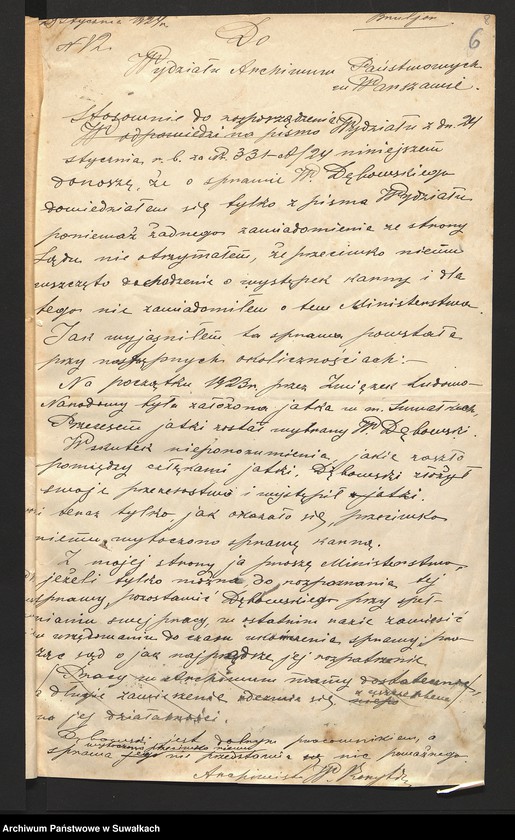 stycznia 1924 r.
Bruljon.
6
N 12.
Do
Wydziału Archiwów Państwowych
w Warszawie.
Stosownie do rozporządzenia
W odpowiedzi na pismo Wydziału z dn. 24
stycznia r. b. za № 331 /24 niniejszem
donoszę, że o sprawie W. Dębowskiego
dowiedziałem się tylko z pisma Wydziału
ponieważ żadnego zawiadomienia ze strony
Sądu nie otrzymałem, że przeciwko niemu
wszczęto dochodzenie o występek karny i dla
tego nie zawiadomiłem o tem Ministerstwa.
Jak wyjaśniłem ta sprawa powstała
przy następnych okolicznościach:-
Na początku 1923 r. przez Związek Ludowo-
Narodowy była założona jatka w m. Suwałkach,
Prezesem jatki został wybrany W. Dębowski.
Wskutek nieporozumienia, jakie zaszło
pomiędzy członkami jatki, Dębowski złożył
swoje prezesostwo i wystąpił z jatki.
i teraz tylko jak okazało się, przeciwko
niemu wytoczono sprawę karną.
Z mojej strony ja proszę Ministerstwo,
jeżeli tylko można do rozpoznania tej
sprawy, pozostawić Dębowskiego przy speł-
nianiu swej pracy, w ostatnim razie zawiesić
w urzędowaniu do czasu ukończenia sprawy, pro-
sząc sąd o jak najprędsze jej rozpatrzenie
Pracy w Archiwum mamy dostatecznie,
a długie zawieszenie odczuwa się
na jej działalności.
Dębowski jest dobrym pracownikiem, a
wytoczona przeciwko niemu
sprawa jego nie przedstawia się nic poważnego.
Archiwista W.
Archiwum Państwowe w Suwałkach